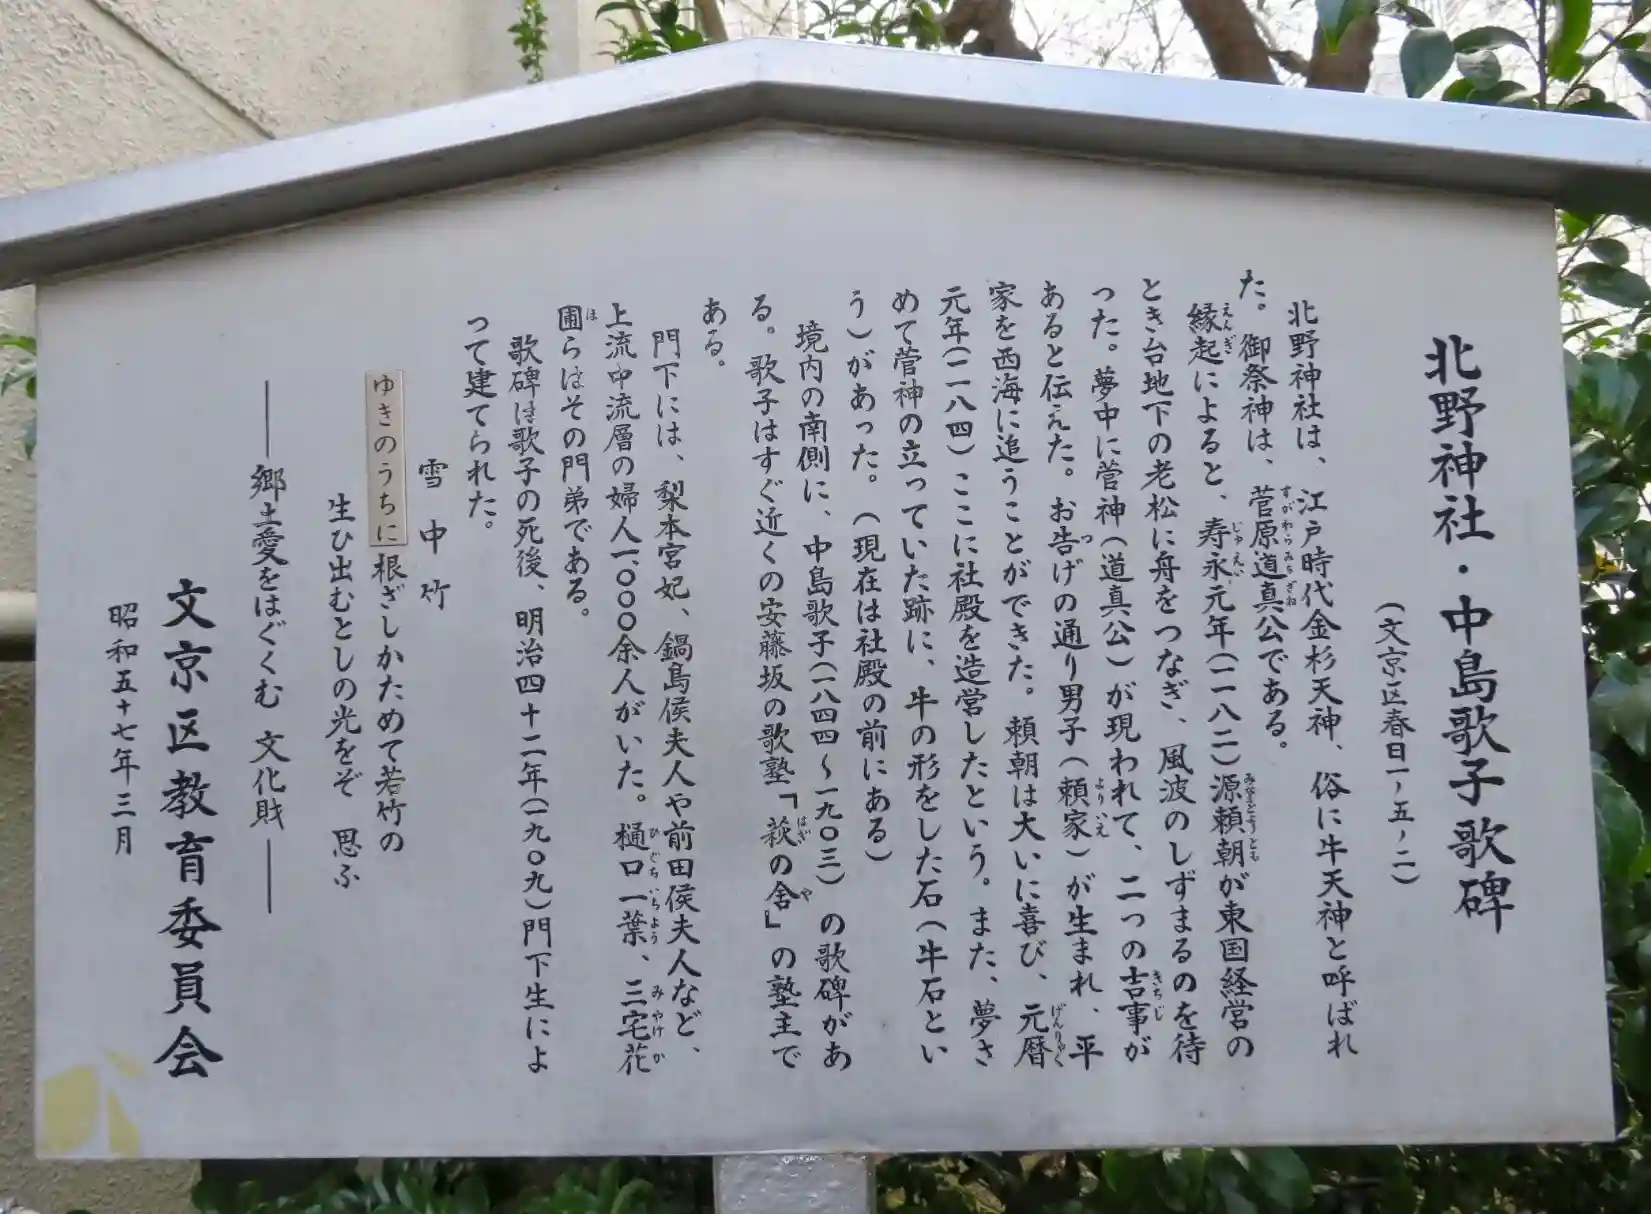 北野神社・中島歌子歌碑
(文京区春日一ノ五ノ二)
北野神社は、江戸時代金杉天神、俗に牛天神と呼ばれ
た。御祭神は、菅原道真公である。
縁起によると、寿永元年(一一八二)源頼朝が東国経営の
とき台地下の老松に舟をつなぎ、風波のしずまるのを待
った。夢中に菅神(道真公)が現われて、二つの吉事が
あると伝えた。お告げの通り男子(頼家)が生まれ、平
家を西海に追うことができた。頼朝は大いに喜び、元暦
元年(一一八四)ここに社殿を造営したという。また、夢さ
めて菅神の立っていた跡に、牛の形をした石(牛石とい
う)があった。(現在は社殿の前にある)
境内の南側に、中島歌子(一八四四〜一九〇三)の歌碑があ
る。歌子はすぐ近くの安藤坂の歌塾「萩の舎」の塾主で
ある。
門下には、梨本宮妃、鍋島侯夫人や前田侯夫人など、
上流中流層の婦人一、〇〇〇余人がいた。樋口一葉、三宅花
圃らはその門弟である。
歌碑は歌子の死後、明治四十二年(一九〇九)門下生によ
って建てられた。
雪中竹
ゆきのうちに根ざしかためて若竹の
生ひ出むとしの光をぞ 思ふ
――郷土愛をはぐくむ 文化財――
文京区教育委員会
昭和五十七年三月